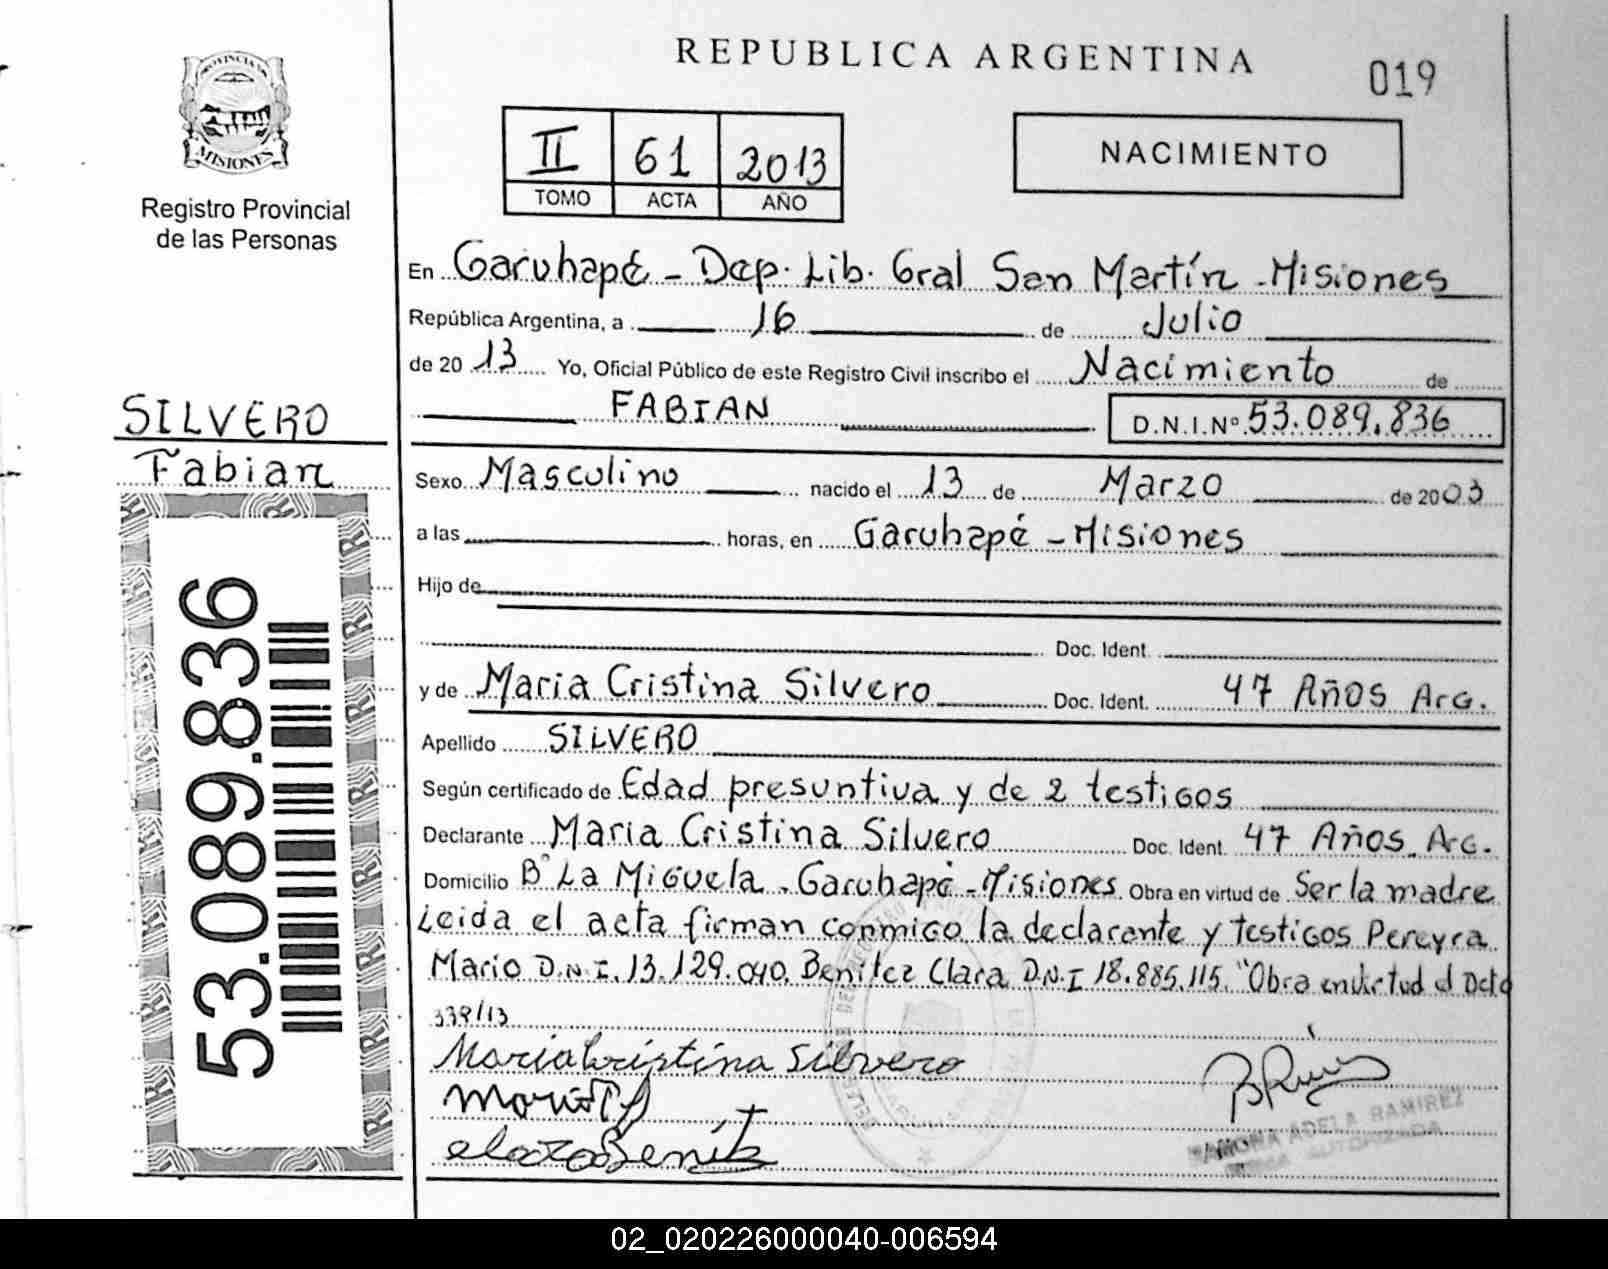 REPUBLICA ARGENTINA
019
PROVINCIA DE
MISIONES
Registro Provincial
de las Personas
II 61 2013
TOMO ACTA AÑO
NACIMIENTO
En Garuhapé - Dep. Lib. Gral San Martín - Misiones
República Argentina, a 16 de Julio
de 2013 Yo, Oficial Público de este Registro Civil inscribo el Nacimiento de
FABIAN D.N.I.Nº 53.089.836
SILVERO
Fabian
53.089.836
Sexo Masculino nacido el 13 de Marzo de 2003
a las horas, en Garuhapé - Misiones
Hijo de
Doc. Ident.
y de Maria Cristina Silvero Doc. Ident. 47 Años Arg.
Apellido SILVERO
Según certificado de Edad presuntiva y de 2 testigos
Declarante Maria Cristina Silvero Doc. Ident. 47 Años Arg.
Domicilio Bº La Miguela - Garuhapé - Misiones Obra en virtud de Ser la madre
Leida el acta firman conmigo la declarante y testigos Pereyra
Mario D.N.I. 13.129.040. Benitez Clara D.N.I 18.885.115. "Obra en virtud d Dcto
339/13
Maria Cristina Silvero
RAMONA ADELA RAMIREZ
FIRMA AUTORIZADA
02_020226000040-006594